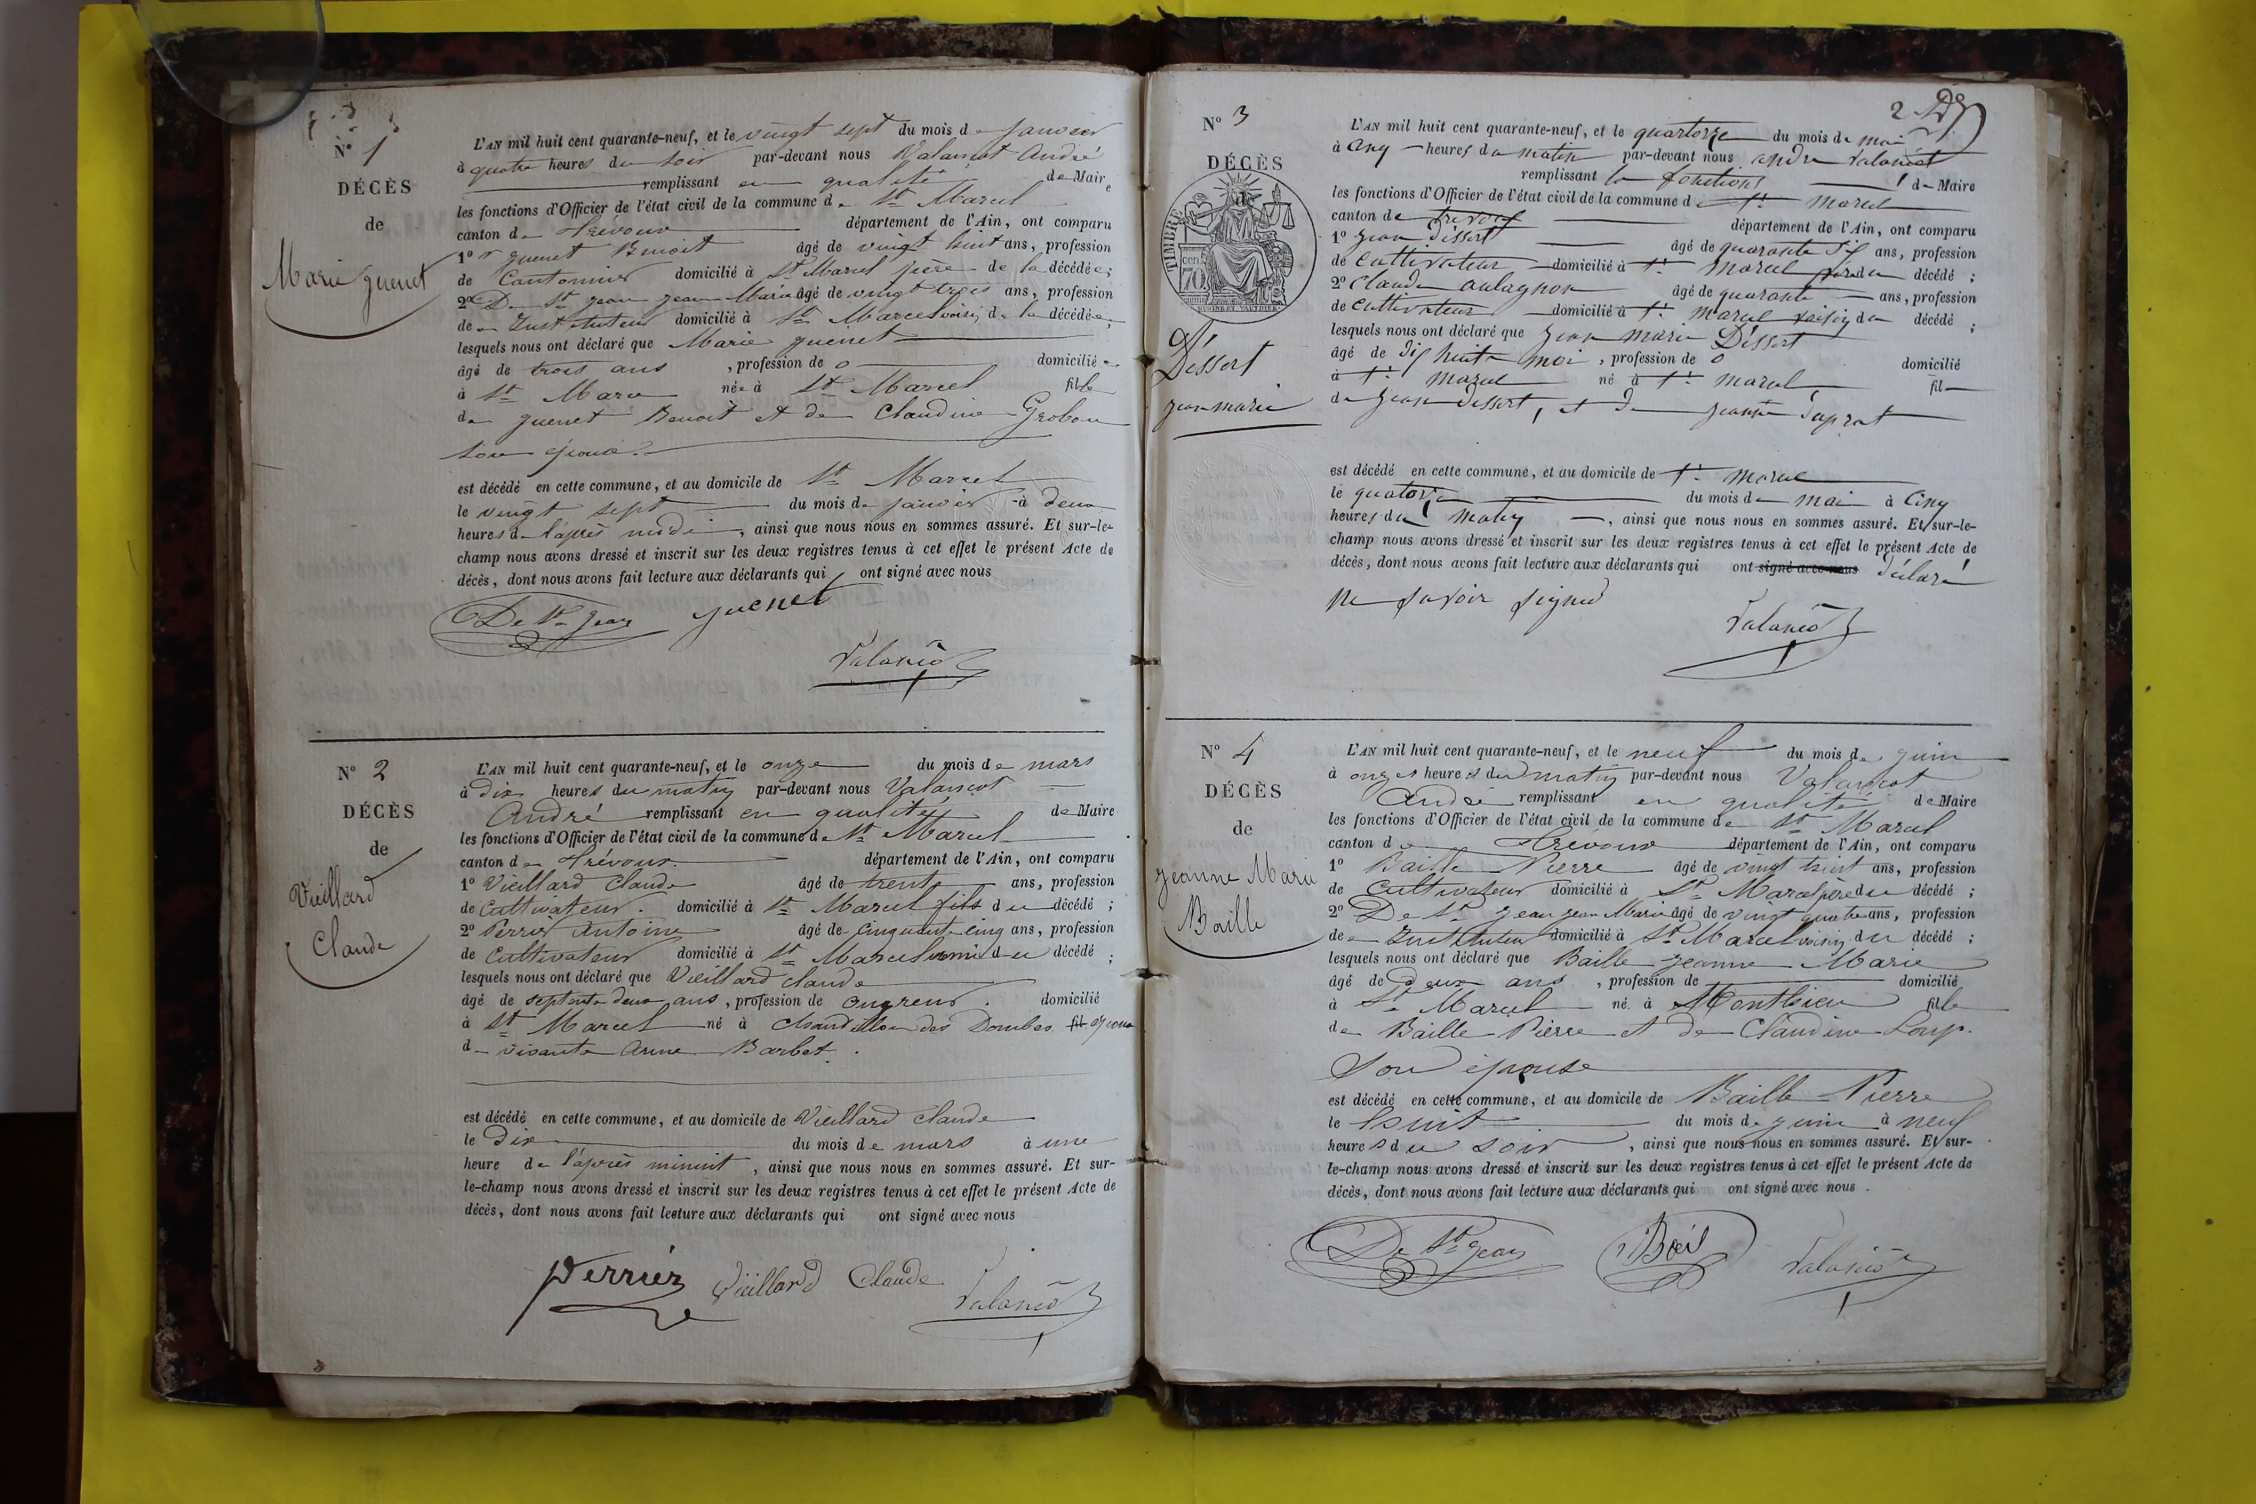 N° 1
DÉCÈS
de
Marie Guenet
L'AN mil huit cent quarante-neuf, et le vingt sept du mois de janvier
à quatre heures du soir par-devant nous Valançot André
remplissant en qualité de Maire
les fonctions d'Officier de l'état civil de la commune de St Marcel
canton de Trévoux département de l'Ain, ont comparu
1° Guenet Benoit âgé de vingt huit ans, profession
de Cantonnier domicilié à St Marcel père de la décédée;
2° De St Jean Jean Marie âgé de vingt trois ans, profession
de Instituteur domicilié à St Marcel voisin de la décédée;
lesquels nous ont déclaré que Marie Guenet
âgé de trois ans, profession de 0 domicilié
à St Marcel née à St Marcel fille
de Guenet Benoit et de Claudine Grobon
son épouse.
est décédé en cette commune, et au domicile de St Marcel
le vingt sept du mois de janvier à deux
heures de l'après midi, ainsi que nous nous en sommes assuré. Et sur-le-
champ nous avons dressé et inscrit sur les deux registres tenus à cet effet le présent Acte de
décès, dont nous avons fait lecture aux déclarants qui ont signé avec nous
De St Jean Guenet
Valançot
N° 2
DÉCÈS
de
Vieillard
Claude
L'AN mil huit cent quarante-neuf, et le onze du mois de mars
à dix heures du matin par-devant nous Valançot
André remplissant en qualité de Maire
les fonctions d'Officier de l'état civil de la commune de St Marcel
canton de Trévoux département de l'Ain, ont comparu
1° Vieillard Claude âgé de trent ans, profession
de Cultivateur domicilié à St Marcel fils du décédé;
2° Perrier Antoine âgé de cinquante cinq ans, profession
de Cultivateur domicilié à St Marcel ami du décédé;
lesquels nous ont déclaré que Vieillard Claude
âgé de septente deux ans, profession de domicilié
à St Marcel né à Chantillon des Dombes fil époux
de vivante Anne Barbet.
est décédé en cette commune, et au domicile de Vieillard Claude
le Dix du mois de mars à une
heure de l'après minuit, ainsi que nous nous en sommes assuré. Et sur-
le-champ nous avons dressé et inscrit sur les deux registres tenus à cet effet le présent Acte de
décès, dont nous avons fait lecture aux déclarants qui ont signé avec nous
Perrier Vieillard Claude Valançot
2
N° 3
DÉCÈS
de
TIMBRE
70
Déssert
jean marie
L'AN mil huit cent quarante-neuf, et le quartorze du mois de mai
à cinq heures du matin par-devant nous andre Valançot
remplissant les fonctions de Maire
les fonctions d'Officier de l'état civil de la commune de St marcel
canton de trevoux département de l'Ain, ont comparu
1° jean Déssert âgé de quarante six ans, profession
de cultivateur domicilié à St marcel père du décédé;
2° claude aulagnon âgé de quarante ans, profession
de cultivateur domicilié à St marcel voisin du décédé;
lesquels nous ont déclaré que jean marie Déssert
âgé de dix huite moi, profession de 0 domicilié
à St marcel né à St marcel fil
de jean dessert, et de jeanne duprat
est décédé en cette commune, et au domicile de St marcel
le quatorze du mois de mai à cinq
heures du matin, ainsi que nous nous en sommes assuré. Et sur-le-
champ nous avons dressé et inscrit sur les deux registres tenus à cet effet le présent Acte de
décès, dont nous avons fait lecture aux déclarants qui ont signé avec nous déclaré
ne savoir signer
Valançot
N° 4
DÉCÈS
de
Jeanne Marie
Baille
L'AN mil huit cent quarante-neuf, et le neuf du mois de juin
à onze heures du matin par-devant nous Valançot
André remplissant en qualité de Maire
les fonctions d'Officier de l'état civil de la commune de St Marcel
canton de Trévoux département de l'Ain, ont comparu
1° Baille Pierre âgé de vingt huit ans, profession
de Cultivateur domicilié à St Marcel père du décédé;
2° De St Jean Jean Marie âgé de vingt quatre ans, profession
de Instituteur domicilié à St Marcel voisin du décédé;
lesquels nous ont déclaré que Baille Jeanne Marie
âgé de deux ans, profession de domicilié
à St Marcel né à Monthieu fille
de Baille Pierre et de Claudine Loup.
Son épouse
est décédé en cette commune, et au domicile de Baille Pierre
le huit du mois de juin à neuf
heures du soir, ainsi que nous nous en sommes assuré. Et sur-
le-champ nous avons dressé et inscrit sur les deux registres tenus à cet effet le présent Acte de
décès, dont nous avons fait lecture aux déclarants qui ont signé avec nous.
De St Jean Valançot